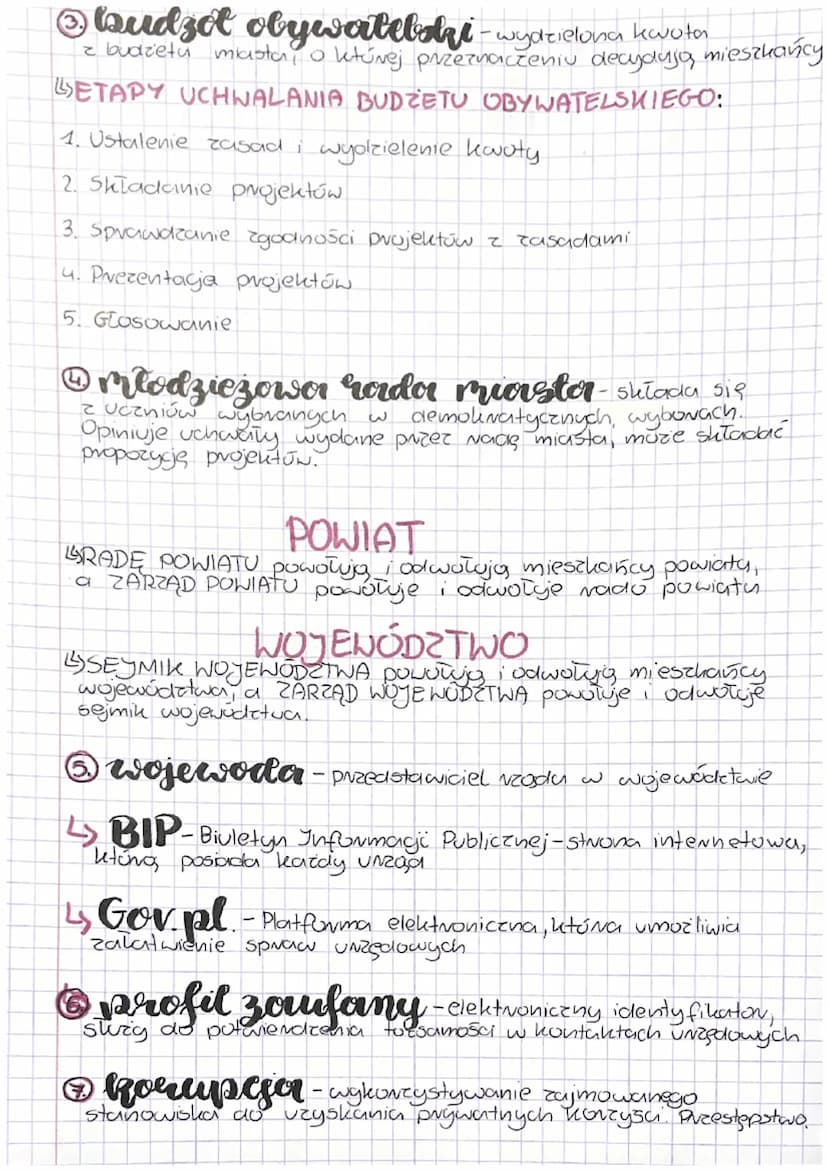 3. budżet obywatelski - wydzielona kwota
z budżetu miasta, o której przeznaczeniu decydują mieszkańcy
↳ ETAPY UCHWALANIA BUDŻETU OBYWATELSKIEGO:
1. Ustalenie zasad i wydzielenie kwoty
2. Składanie projektów
3. Sprawdzanie zgodności projektów z zasadami
4. Prezentacja projektów
5. Głosowanie
4. młodzieżowa rada miasta - składa się
z uczniów wybranych w demokratycznych wyborach.
Opiniuje uchwały wydane przez radę miasta, może składać
propozycję projektów.
POWIAT
↳ RADĘ POWIATU powołują i odwołują mieszkańcy powiatu,
a ZARZĄD POWIATU powołuje i odwołuje rada powiatu
WOJEWÓDZTWO
↳ SEJMIK WOJEWÓDZTWA powołują i odwołują mieszkańcy
województwa, a ZARZĄD WOJEWÓDZTWA powołuje i odwołuje
sejmik województwa.
5. wojewoda - przedstawiciel rządu w województwie
↳ BIP - Biuletyn Informacji Publicznej - strona internetowa,
którą posiada każdy urząd
↳ Gov.pl. - Platforma elektroniczna, która umożliwia
załatwienie spraw urzędowych
6. profil zaufany - elektroniczny identyfikator,
służy do potwierdzenia tożsamości w kontaktach urzędowych
7. korupcja - wykorzystywanie zajmowanego
stanowiska do uzyskania prywatnych korzyści. Przestępstwo.